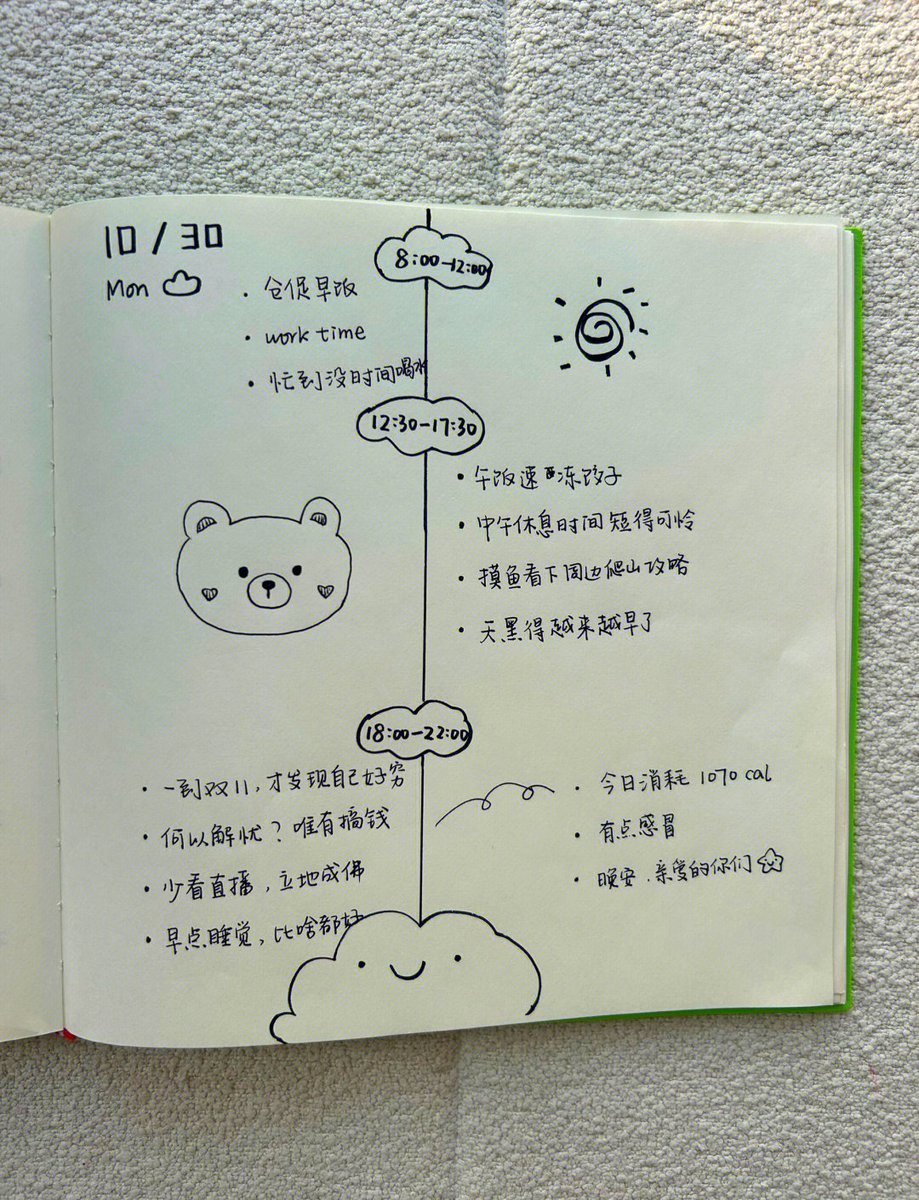 10/30
Mon
8:00-12:00
· 仓促早饭
· work time
· 忙到没时间喝水
12:30-17:30
· 午饭速冻饺子
· 中午休息时间短得可怜
· 摸鱼看下周边爬山攻略
· 天黑得越来越早了
18:00-22:00
· 一到双11,才发现自己好穷
· 何以解忧?唯有搞钱
· 少看直播,立地成佛
· 早点睡觉,比啥都好
· 今日消耗 1070 cal
· 有点感冒
· 晚安.亲爱的你们